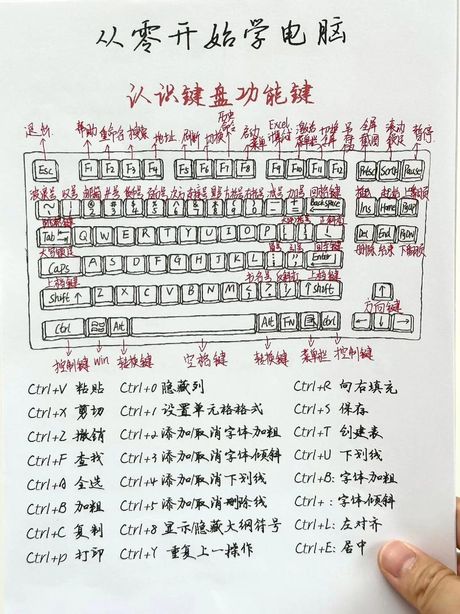 从零开始学电脑
认识键盘功能键
退出 帮助 重命名 搜索 地址 刷新 切换 启动菜单 Excel 另存 全屏截图 滚动锁定 暂停
Esc F1 F2 F3 F4 F5 F6 F7 F8 F9 F10 F11 F12 Prtsc Scrl Pause
感叹号 减号 加号 回格键
@ # $ % ^ & * ( ) Backspace Ins Home PgUP
删除 结束 下翻页
Tab Q W E R T Y U I O P Del End PgDN
大写锁定 冒号 引号 回车键
Caps A S D F G H J K L Enter
上档键 书名号 反斜杠 上档键
Shift ↑ Z X C V B N M ↑ Shift ↑
方向键
Ctrl Alt Alt FN Ctrl ← ↓ →
控制键 Win 转换键 空格键 转换键 菜单栏 控制键
Ctrl+V 粘贴 Ctrl+0 隐藏列 Ctrl+R 向右填充
Ctrl+X 剪切 Ctrl+1 设置单元格格式 Ctrl+S 保存
Ctrl+Z 撤销 Ctrl+2 添加/取消字体加粗 Ctrl+T 创建表
Ctrl+F 查找 Ctrl+3 添加/取消字体倾斜 Ctrl+U 下划线
Ctrl+A 全选 Ctrl+4 添加/取消下划线 Ctrl+B: 字体加粗
Ctrl+B 加粗 Ctrl+5 添加/取消删除线 Ctrl+ : 字体倾斜
Ctrl+C 复制 Ctrl+8 显示/隐藏大纲符号 Ctrl+L: 左对齐
Ctrl+p 打印 Ctrl+Y 重复上一操作 Ctrl+E: 居中